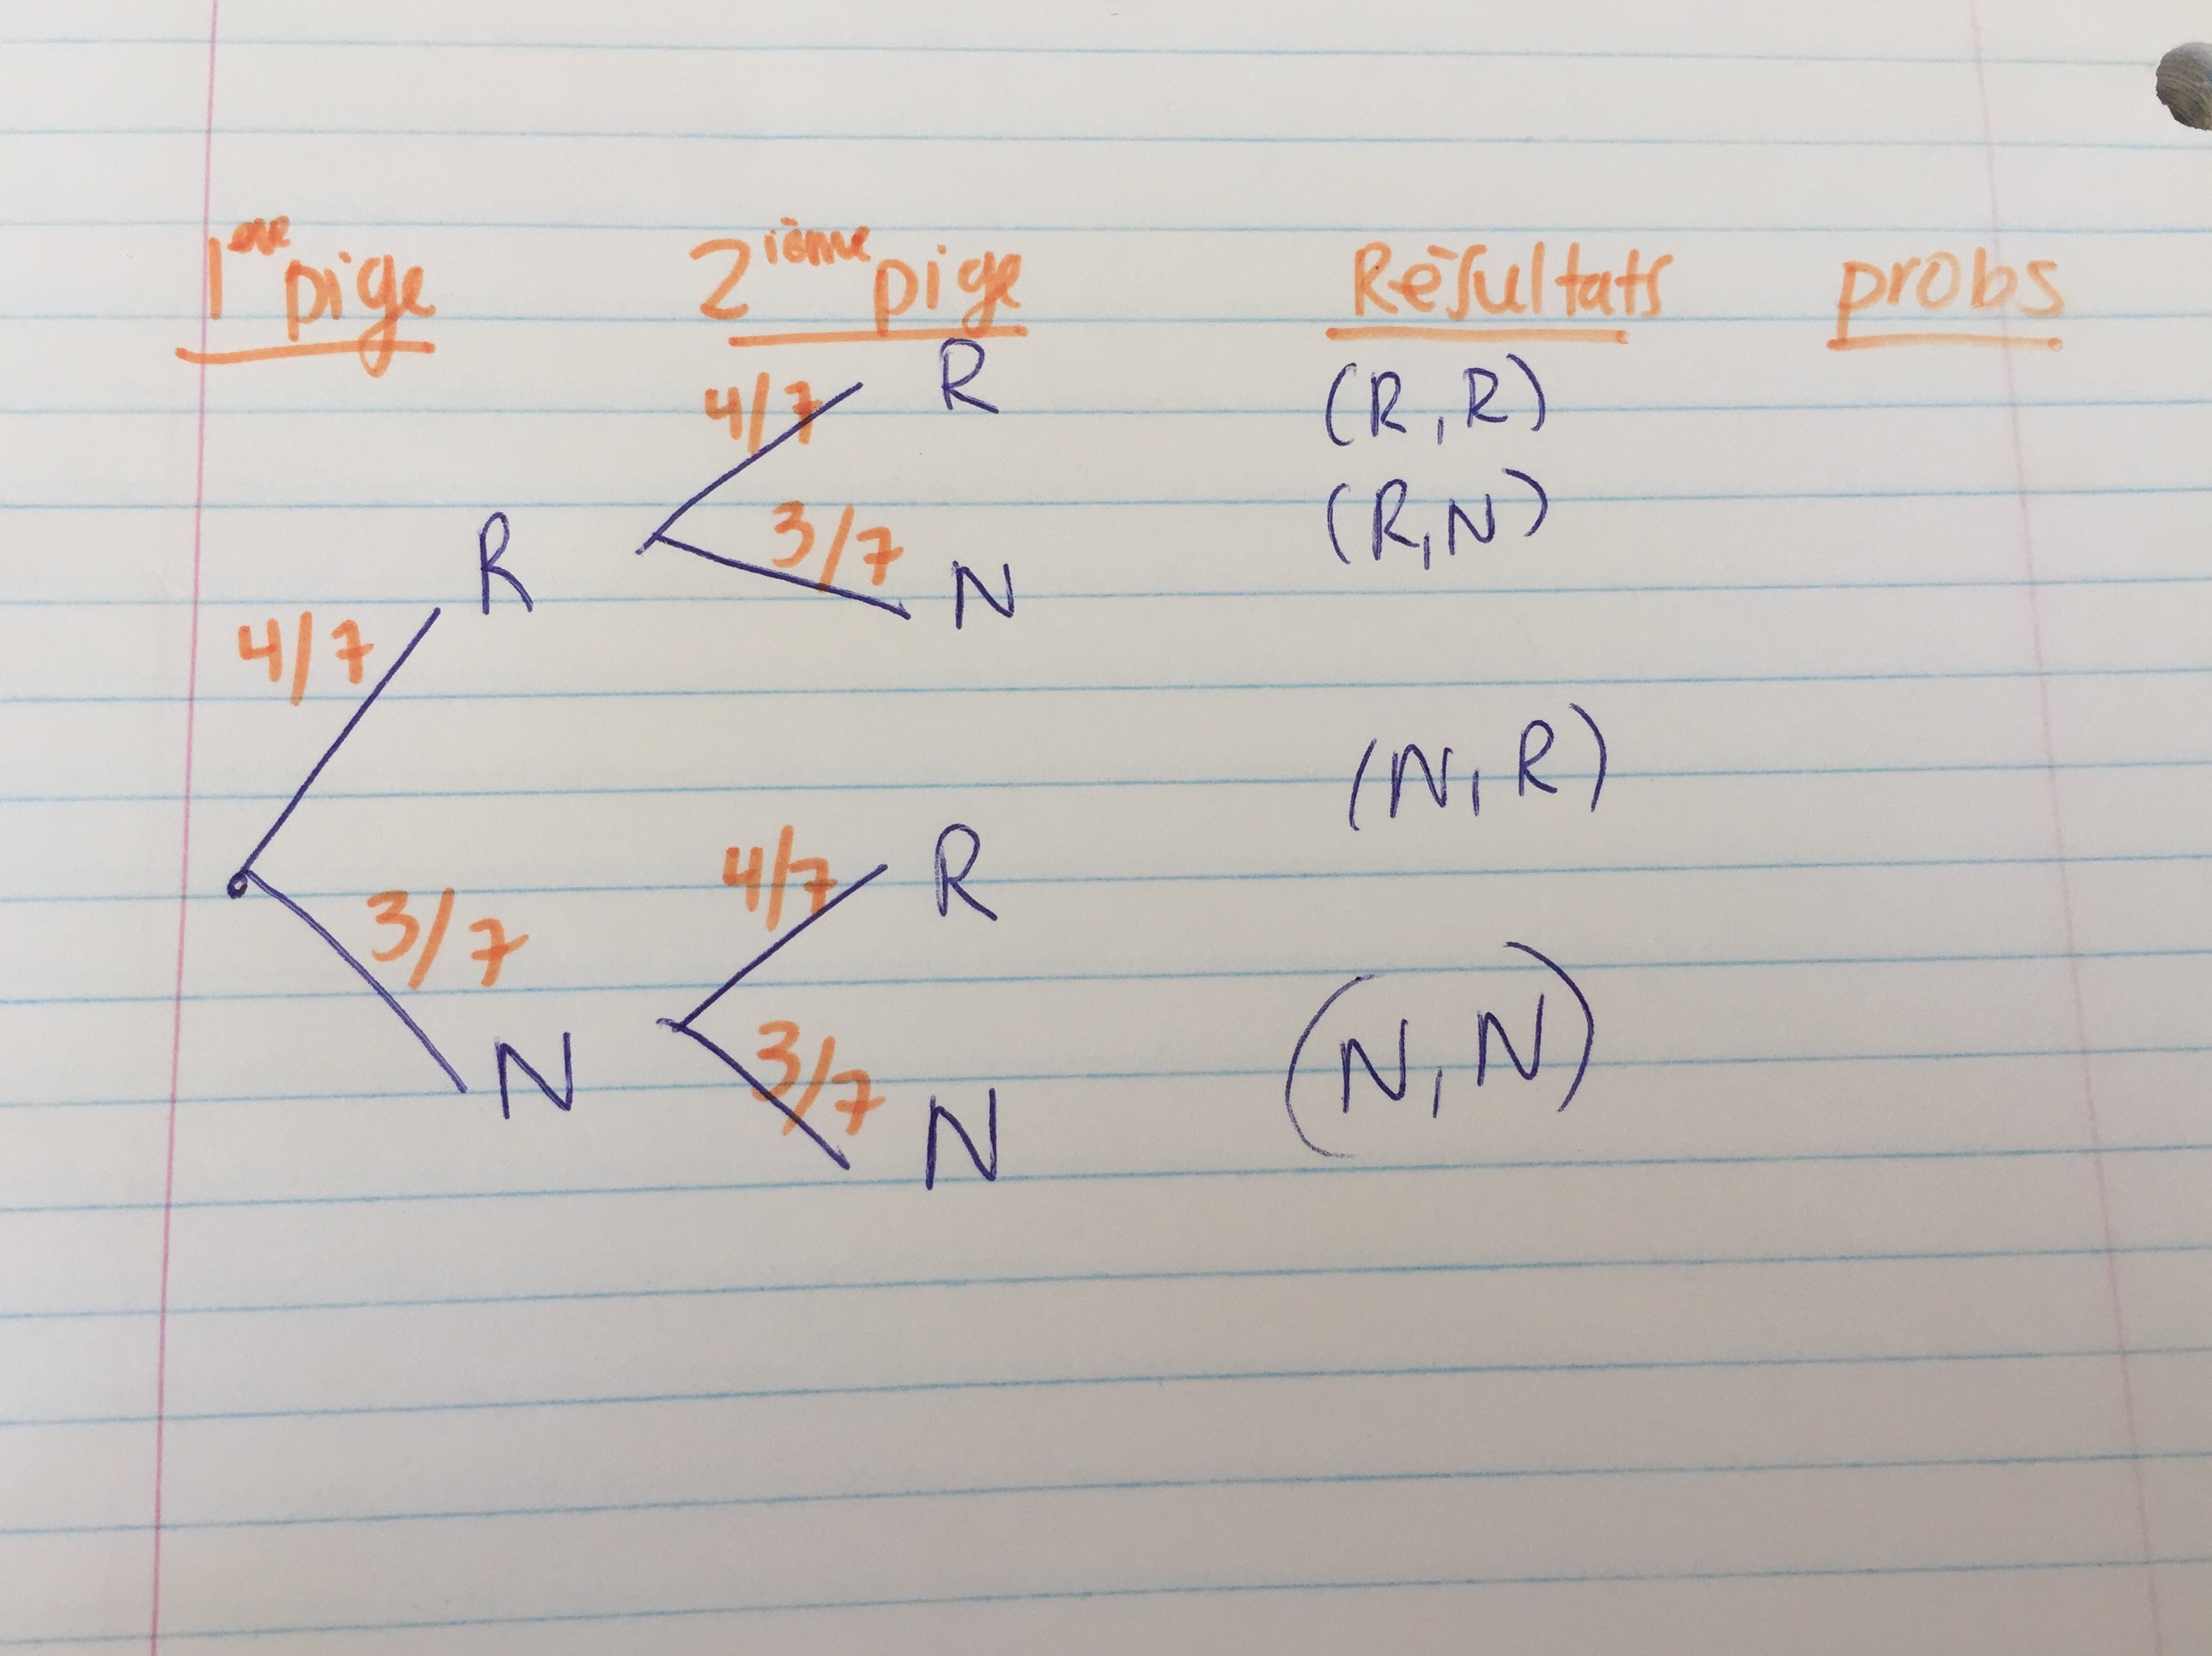 1ere pige 2ième pige Résultats probs
4/7 R (R,R)
3/7 (R,N)
R N
4/7
(N,R)
4/7 R
3/7
3/7 (N,N)
N N